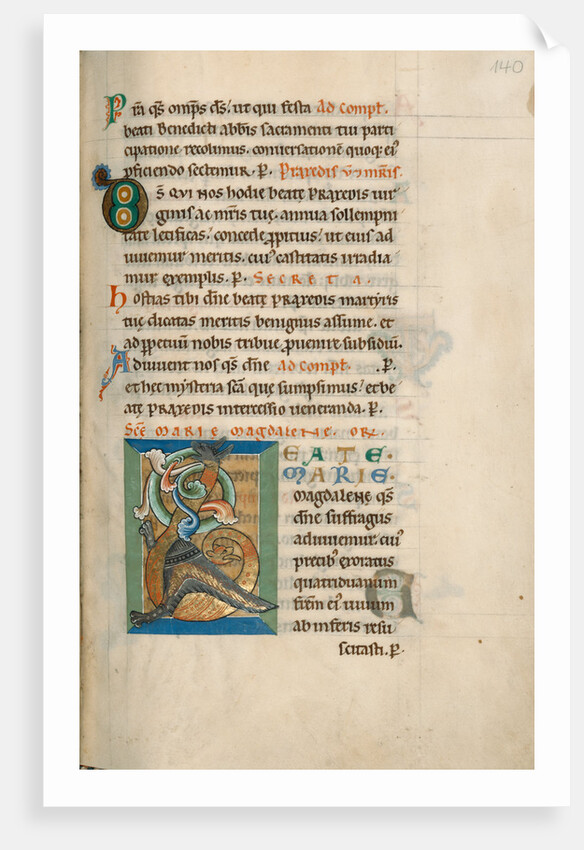 140
Pͣra qs omps ds, ut qui festa Ad compl.
beati Benedicti abbis sacramenti tui parti
cipatione recolimus. conuersationem quoq; ei᾽
pficiendo sectemur. P. Praxedis v̄ mr̄is.
DS QUI NOS hodie beate PRAXEDIS uir
ginis ac mr̄is tuę. annua sollempni
tate letificas. concede ppitius, ut eius ad
iuuemur meritis. cui᾽ castitatis irradia
mur exemplis. P. SECRETA.
hostias tibi dn̄e beatę PRAXEDIS martyris
tuę dicatas meritis benignus assume. et
ad ppetuū nobis tribue puenire subsidiū.
Adiuuent nos qs dn̄e Ad compl. P.
et hec mysteria sc̄a que sumpsimus, et be
atę PRAXEDIS intercessio ueneranda. P.
SCE MARIE MAGDALENE. OR.
BEATE
MARIE
MAGDALENE qs
dn̄e suffragiis
adiuuemur. cui᾽
precib; exoratus
quatriduanum
frēm ei᾽ uiuum
ab inferis resu
scitasti. P.